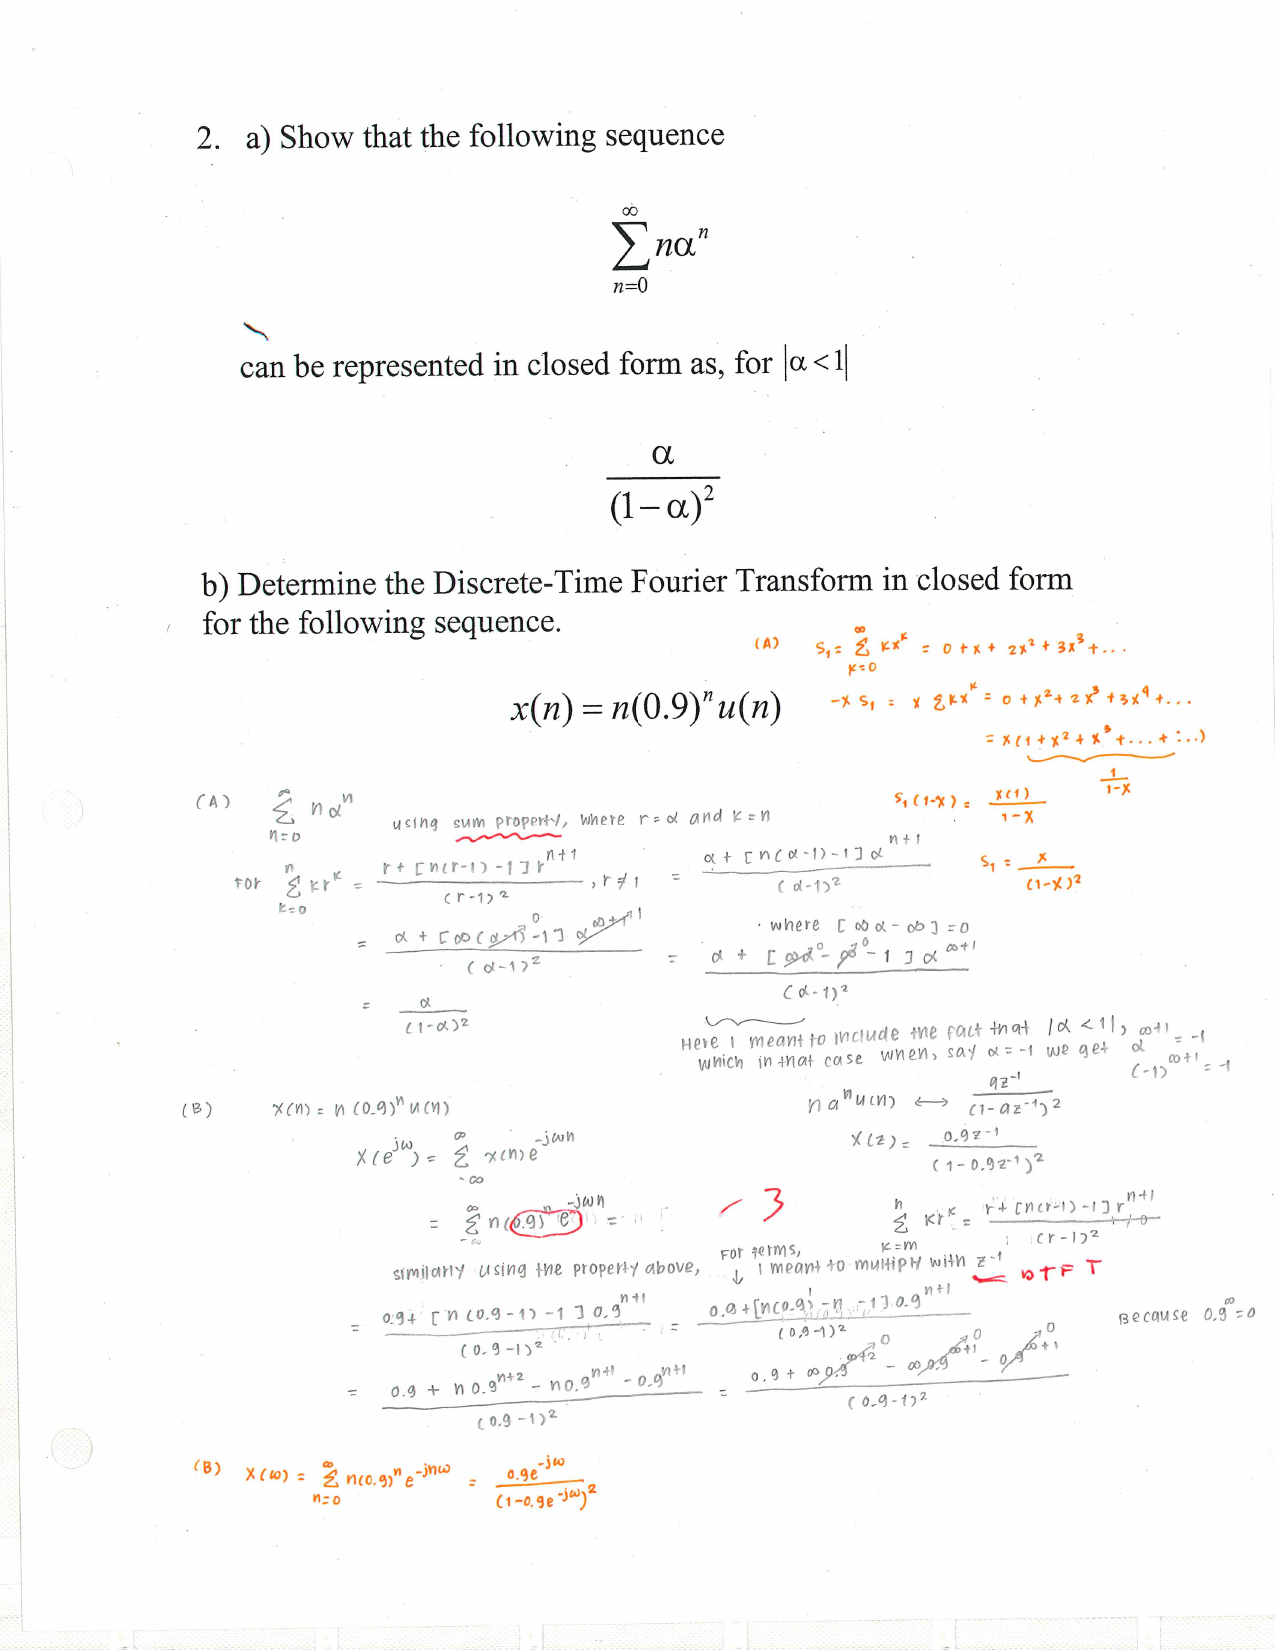 2. a) Show that the following sequence
∞
∑ nαⁿ
n=0
can be represented in closed form as, for |α < 1|
α
(1−α)²
b) Determine the Discrete-Time Fourier Transform in closed form
for the following sequence.
x(n) = n(0.9)ⁿu(n)
(A) S₁ = ∑ kxᵏ = 0 + x + 2x² + 3x³ + ...
∞
k=0
-x S₁ = x ∑kxᵏ = 0 + x² + 2x³ + 3x⁴ + ...
= x(1 + x² + x³ + ... + ...)
1/(1-x)
S₁(1-x) = x(1)/(1-x)
S₁ = x/(1-x)²
(A) ∞ ∑ n=0 nαⁿ
using sum property, where r = α and k = n
For n ∑ k=0 krᵏ = (r + [n(r-1) -1] rⁿ⁺¹)/(r-1)², r ≠ 1 = (α + [n(α-1) -1] αⁿ⁺¹)/(α-1)²
· where [∞α - ∞] = 0
= (α + [∞(α-1)⁰ -1] α^∞+1)/(α-1)² = (α + [∞α⁰ - ∞⁰ - 1] α^∞+1)/(α-1)²
= α/(1-α)²
Here I meant to include the fact that |α < 1|, α^∞+1 = -1
which in that case when, say α = -1 we get (-1)^∞+1 = -1
(B) x(n) = n(0.9)ⁿ u(n)
n aⁿ u(n) ⟷ az⁻¹/(1-az⁻¹)²
X(e^jω) = ∞ ∑ -∞ x(n)e^-jωn
X(z) = 0.9z⁻¹/(1-0.9z⁻¹)²
= ∞ ∑ -∞ n(0.9)ⁿ e^-jωn =
- 3
n ∑ k=m krᵏ = (r + [n(r-1) -1] rⁿ⁺¹)/(r-1)²
similarly using the property above,
For terms,
↓ I meant to multiply with z⁻¹
DTFT
= (0.9 + [n(0.9-1) -1] 0.9ⁿ⁺¹)/(0.9-1)² = (0.9 + [n(0.9) - n - 1] 0.9ⁿ⁺¹)/(0.9-1)²
Because 0.9^∞ = 0
= (0.9 + n0.9ⁿ⁺² - n0.9ⁿ⁺¹ - 0.9ⁿ⁺¹)/(0.9-1)² = (0.9 + ∞0.9^∞+2 0 - ∞0.9^∞+1 0 - 0.9^∞+1 0)/(0.9-1)²
(B) X(ω) = ∞ ∑ n=0 n(0.9)ⁿ e^-jnω = 0.9e^-jω/(1-0.9e^-jω)²